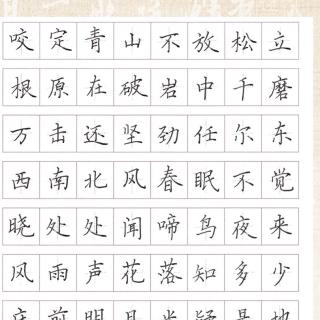 咬定青山不放松立
根原在破岩中千磨
万击还坚劲任尔东
西南北风春眠不觉
晓处处闻啼鸟夜来
风雨声花落知多少
床前明月光疑是地